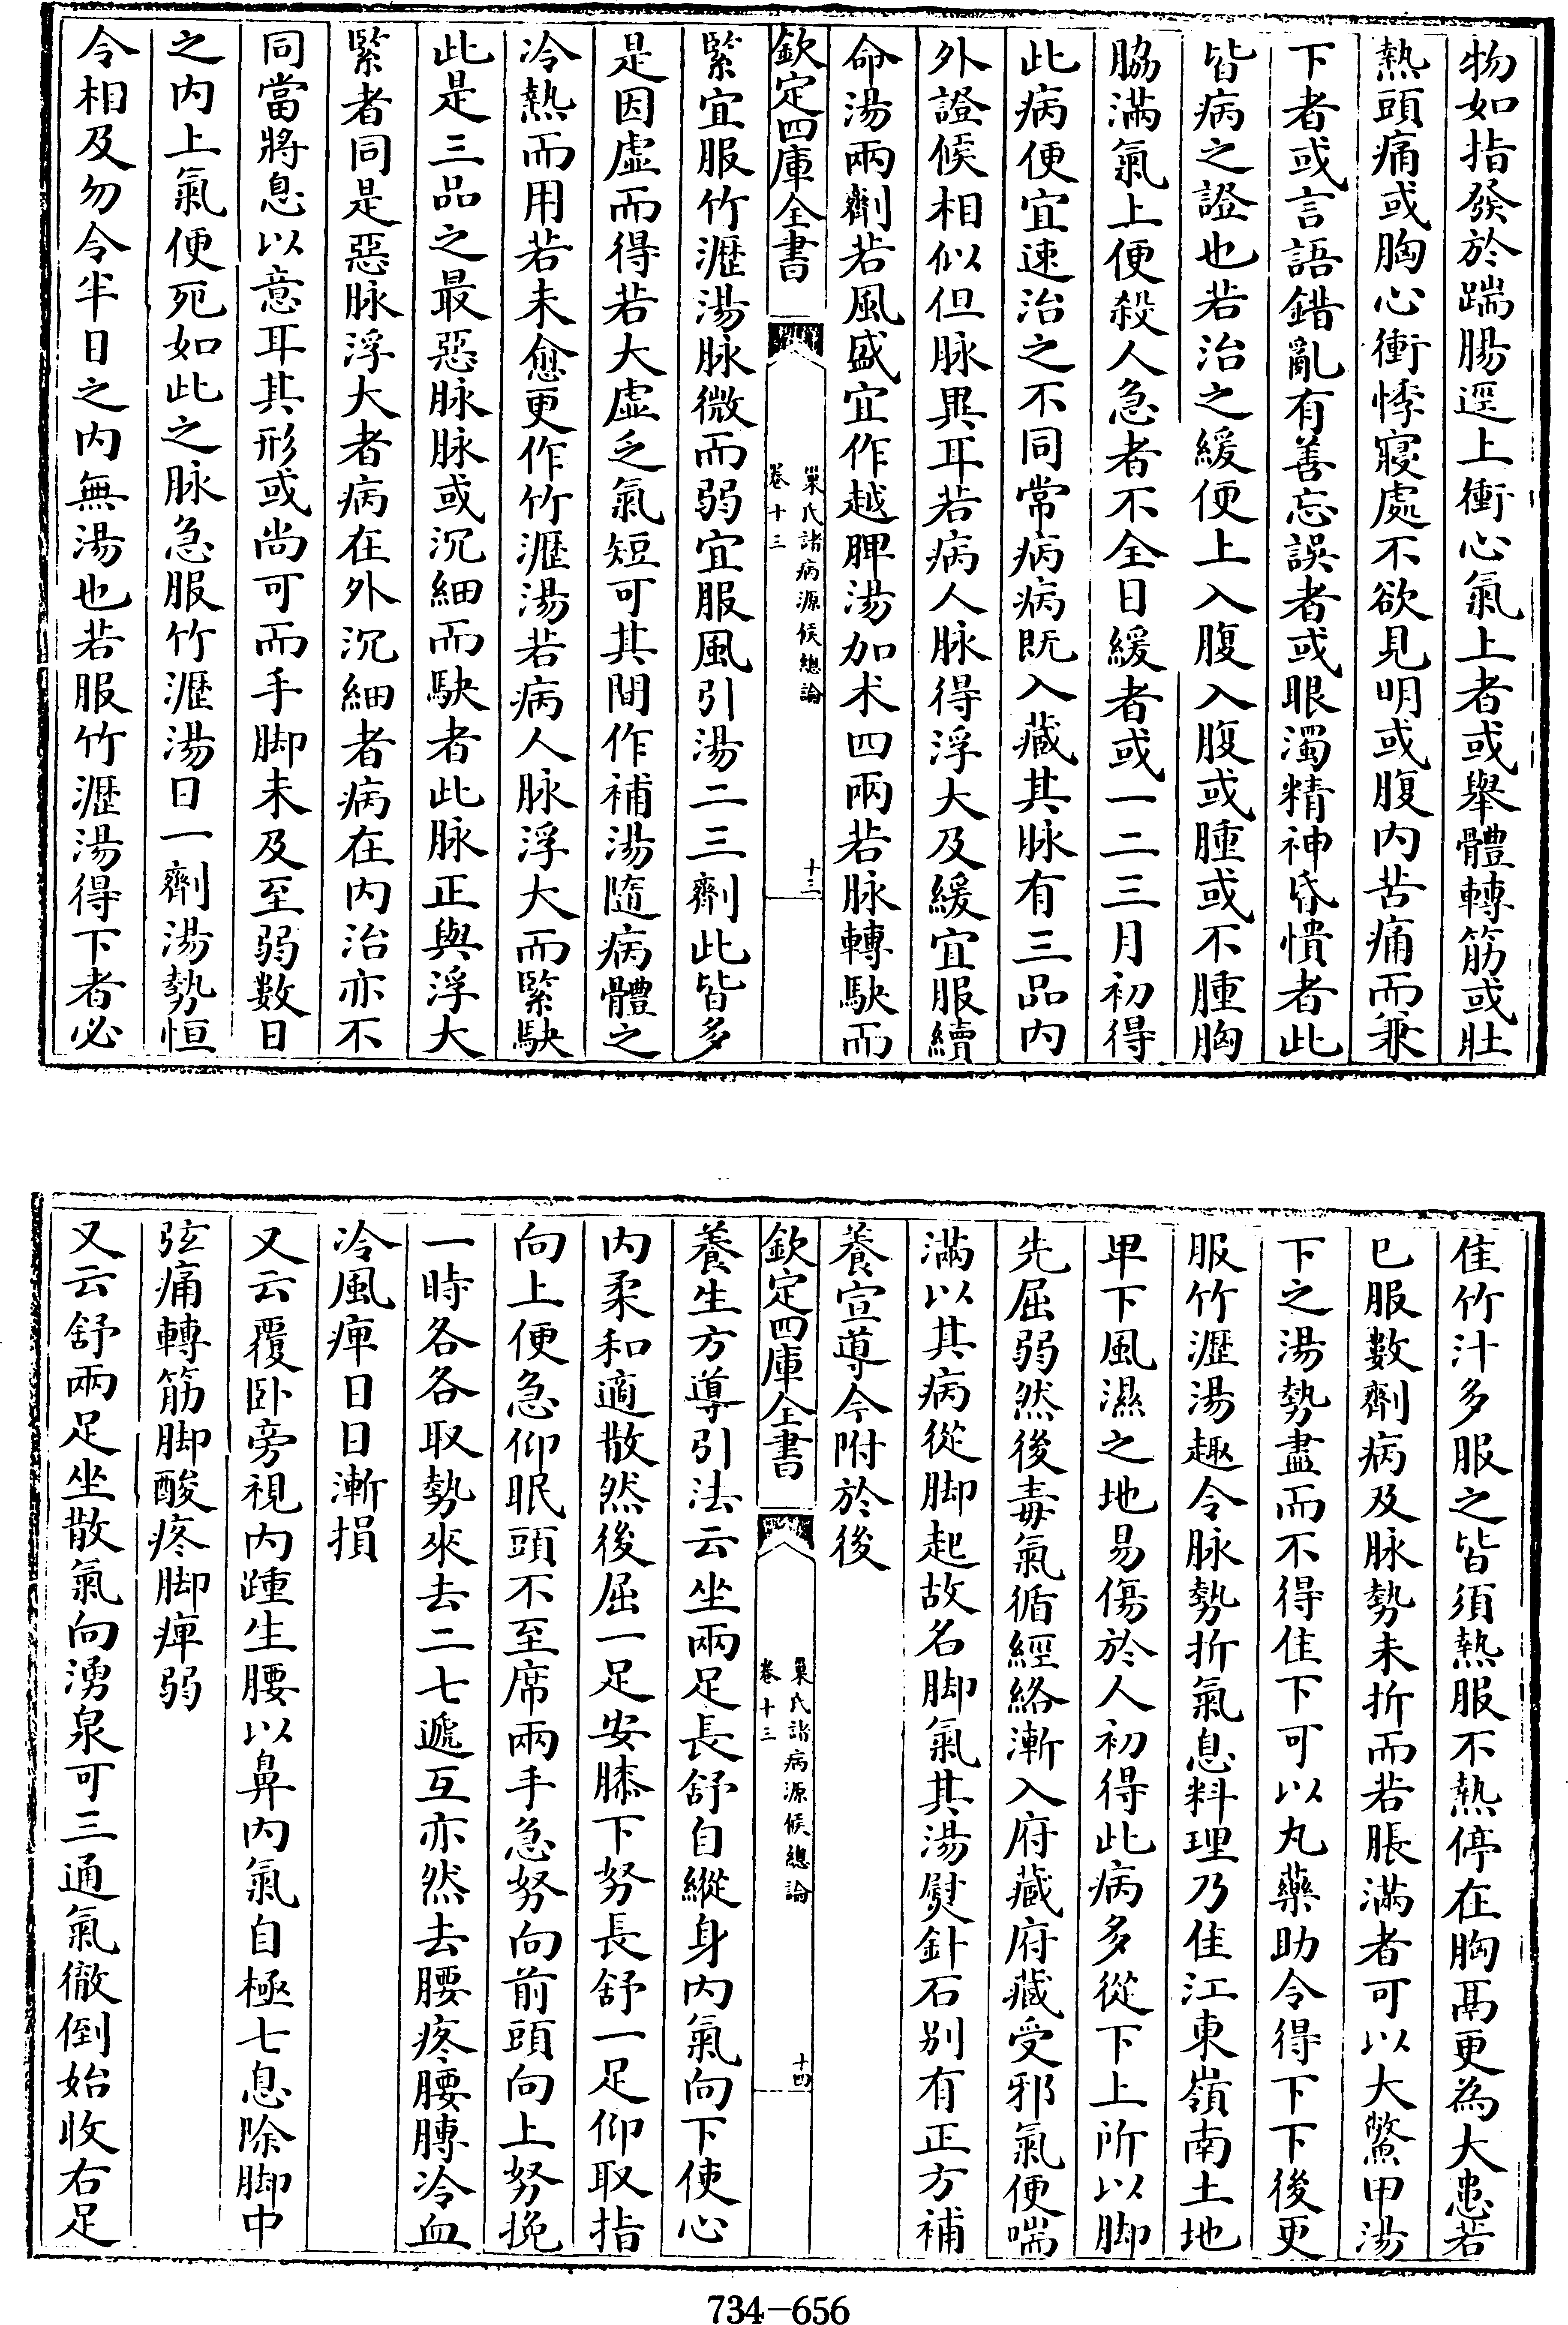 物如指發於踹腸逕上衝心氣上者或舉體轉筋或壯
熱頭痛或胸心衝悸寢處不欲見明或腹内苦痛而兼
下者或言語錯亂有善忘誤者或眼濁精神昏憒者此
皆病之證也若治之緩便上入腹入腹或腫或不腫胸
脇滿氣上便殺人急者不全日緩者或一二三月初得
此病便宜速治之不同常病病既入藏其脉有三品内
外證候相似但脉異耳若病人脉得浮大及緩宜服續
命湯兩劑若風盛宜作越脾湯加朮四兩若脉轉駃而
欽定四庫全書
巢氏諸病源候總論
卷十三
十三
緊宜服竹瀝湯脉微而弱宜服風引湯二三劑此皆多
是因虚而得若大虚乏氣短可其間作補湯隨病體之
冷熱而用若未愈更作竹瀝湯若病人脉浮大而緊駃
此是三品之最惡脉脉或沉細而駃者此脉正與浮大
緊者同是惡脉浮大者病在外沉細者病在内治亦不
同當將息以意耳其形或尚可而手脚未及至弱數日
之内上氣便死如此之脉急服竹瀝湯日一劑湯勢恒
令相及勿令半日之内無湯也若服竹瀝湯得下者必
佳竹汁多服之皆須熱服不熱停在胸鬲更為大患若
已服數劑病及脉勢未折而若脹滿者可以大鱉甲湯
下之湯勢盡而不得佳下可以丸藥助令得下下後更
服竹瀝湯趣令脉勢折氣息料理乃佳江東嶺南土地
卑下風濕之地易傷於人初得此病多從下上所以脚
先屈弱然後毒氣循經絡漸入府藏府藏受邪氣便喘
滿以其病從脚起故名脚氣其湯熨針石别有正方補
養宣導今附於後
欽定四庫全書
巢氏諸病源候總論
卷十三
十四
養生方導引法云坐兩足長舒自縱身内氣向下使心
内柔和適散然後屈一足安膝下努長舒一足仰取指
向上便急仰眠頭不至席兩手急努向前頭向上努挽
一時各各取勢來去二七遞互亦然去腰疼腰膊冷血
冷風痺日日漸損
又云覆卧旁視内踵生腰以鼻内氣自極七息除脚中
弦痛轉筋脚酸疼脚痺弱
又云舒兩足坐散氣向湧泉可三通氣徹倒始收右足
734-656